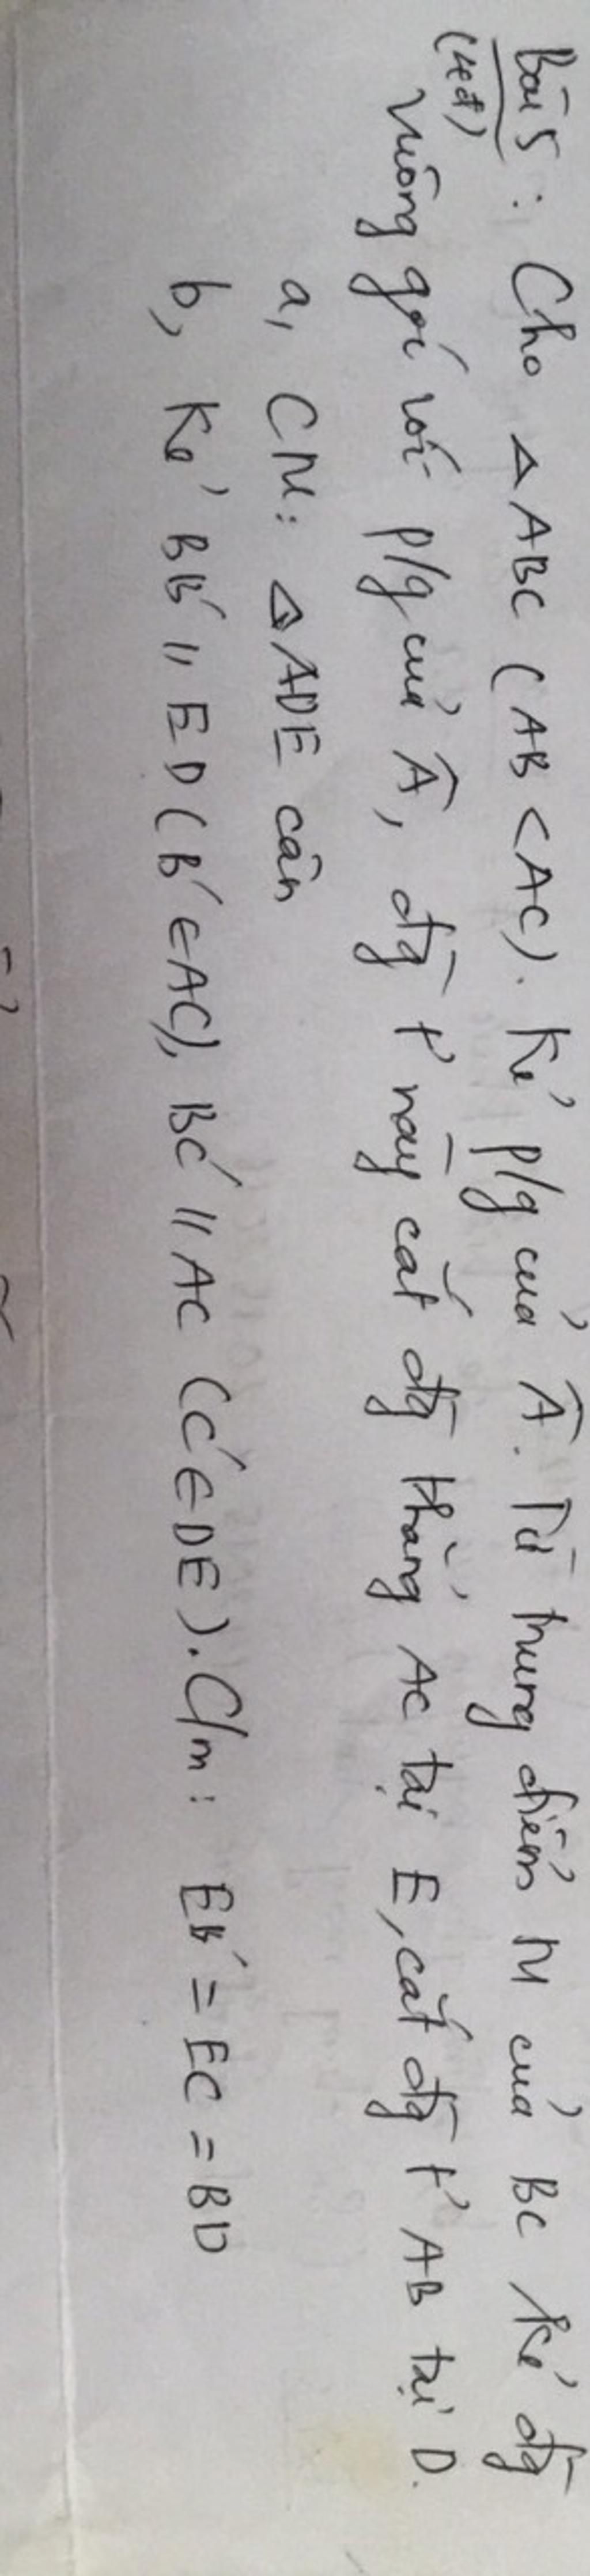 Bài 5: Cho △ABC (AB < AC). Kẻ p/g của Â. Từ trung điểm M của BC kẻ đg
(4đ) vuông góc với p/g của Â, đg t' này cắt đg thẳng AC tại E, cắt đg t' AB tại D.
a, CM: △ADE cân
b, Kẻ BB' // ED (B' ∈ AC), BC' // AC (C' ∈ DE). C/m: EB' = EC = BD